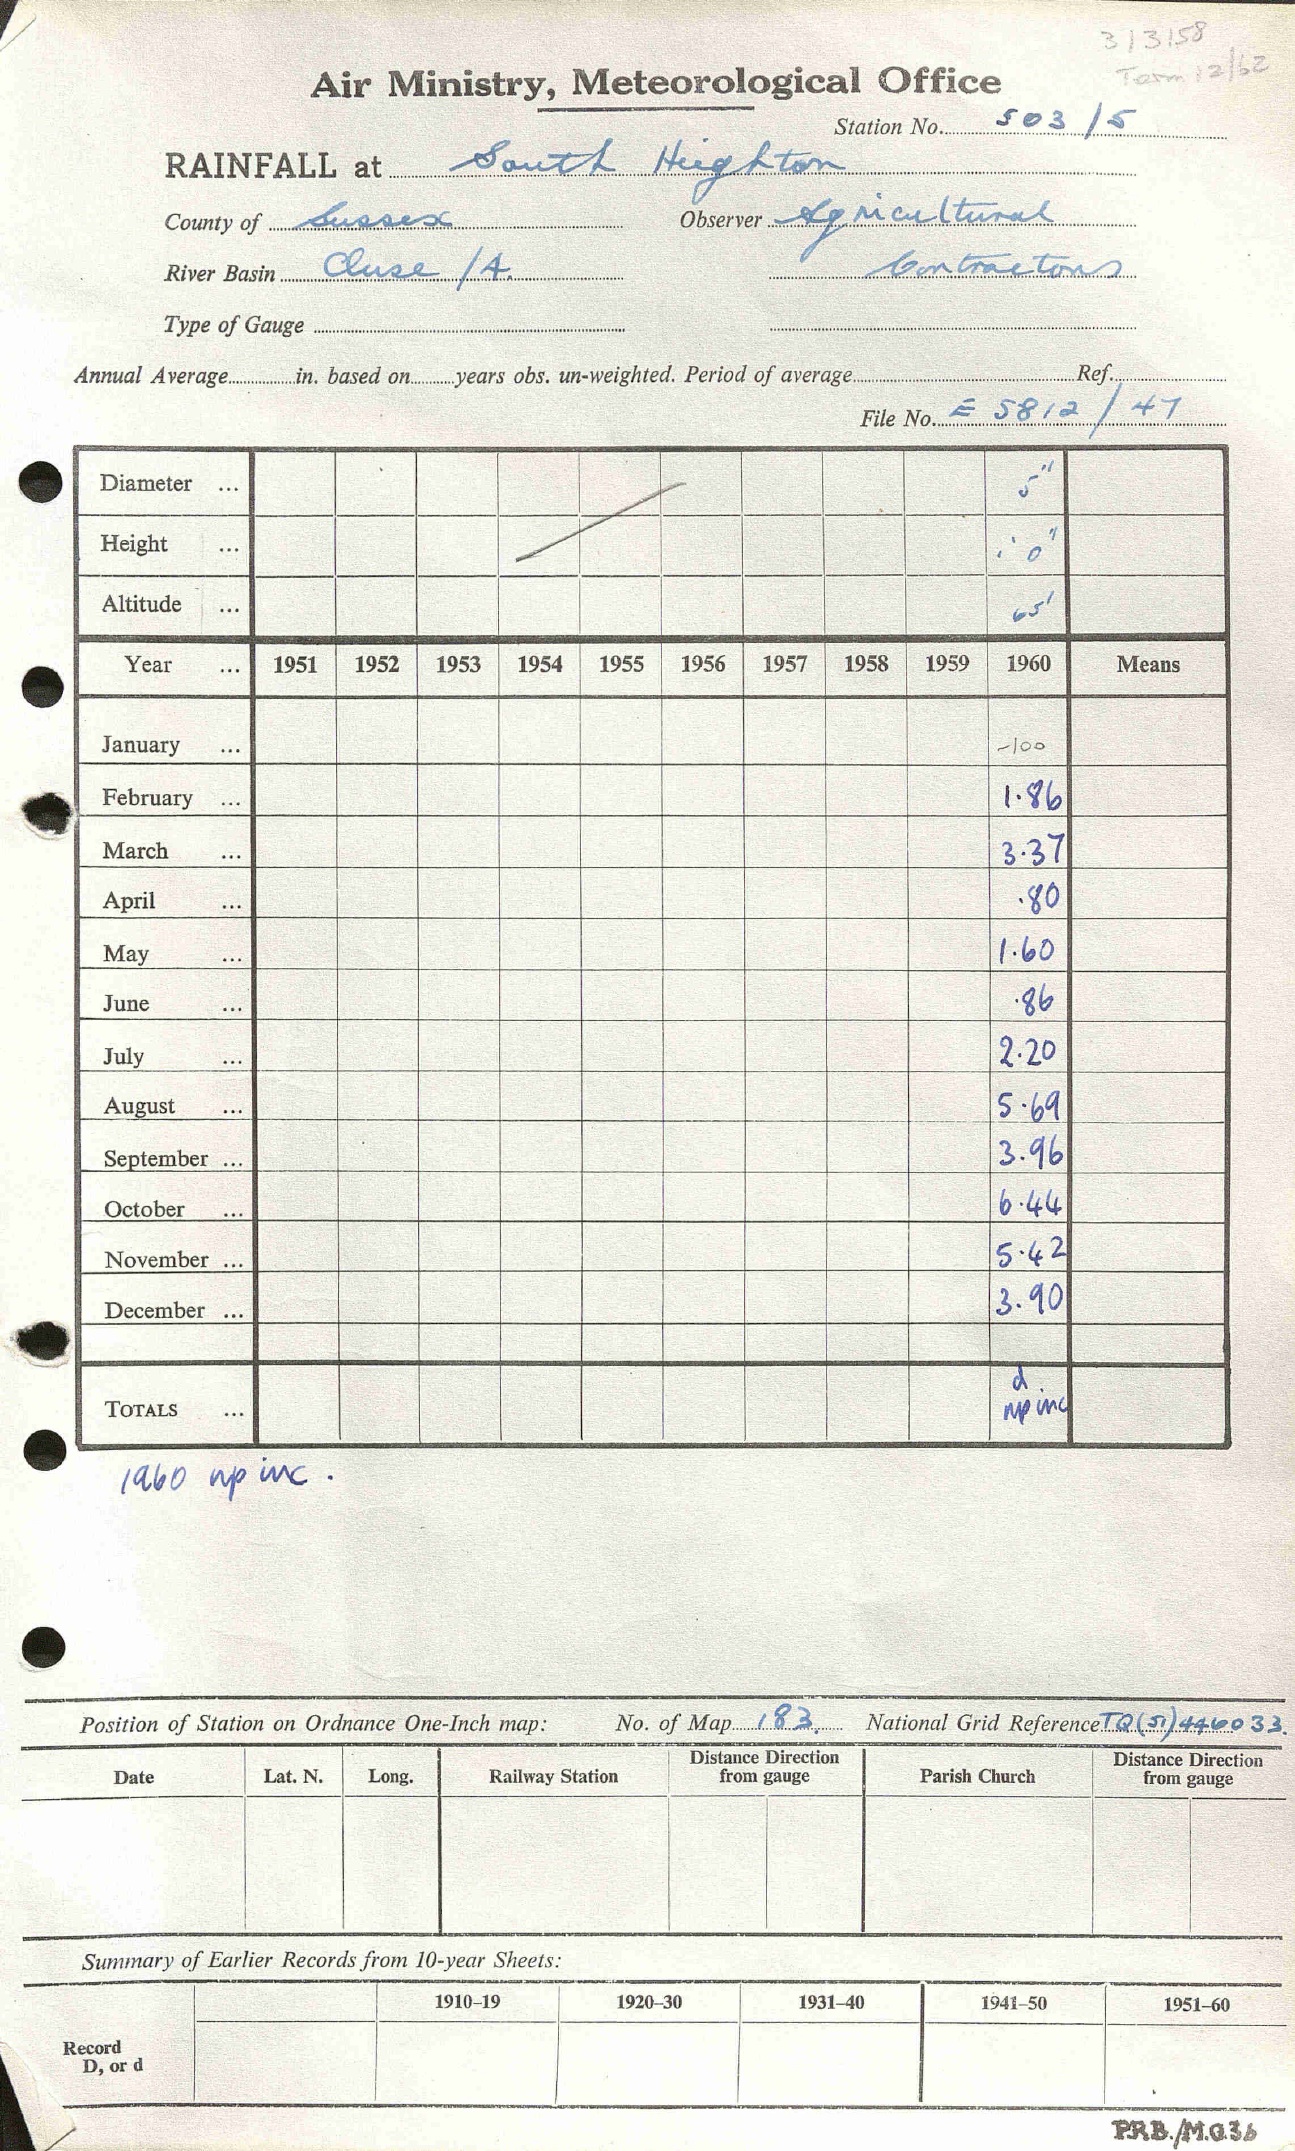 3/3/58
Term 12/62
Air Ministry, Meteorological Office
Station No. 503/5
RAINFALL at South Heighton
County of Sussex Observer Agricultural
River Basin Ouse /A. Contractors
Type of Gauge
Annual Average in. based on years obs. un-weighted. Period of average Ref.
File No. E 5812/47
Diameter ... 5"
Height ... 1' 0"
Altitude ... 65'
Year ... 1951 1952 1953 1954 1955 1956 1957 1958 1959 1960 Means
January ... -100
February ... 1.86
March ... 3.37
April ... .80
May ... 1.60
June ... .86
July ... 2.20
August ... 5.69
September ... 3.96
October ... 6.44
November ... 5.42
December ... 3.90
d.
TOTALS ... np inc
1960 np inc.
Position of Station on Ordnance One-Inch map: No. of Map 183. National Grid Reference TQ(51)446033.
Date Lat. N. Long. Railway Station Distance Direction from gauge Parish Church Distance Direction from gauge
Summary of Earlier Records from 10-year Sheets:
1910–19 1920–30 1931–40 1941–50 1951–60
Record
D, or d
P.R.B./M.O.36